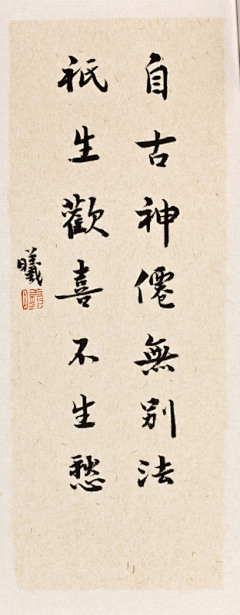 自古神僊無別法
祇生歡喜不生愁
曦